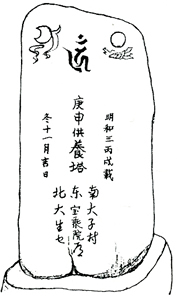 明和三丙戌載
庚申供養塔
冬十一月吉日
南大子村
东宝乘院道
北大生